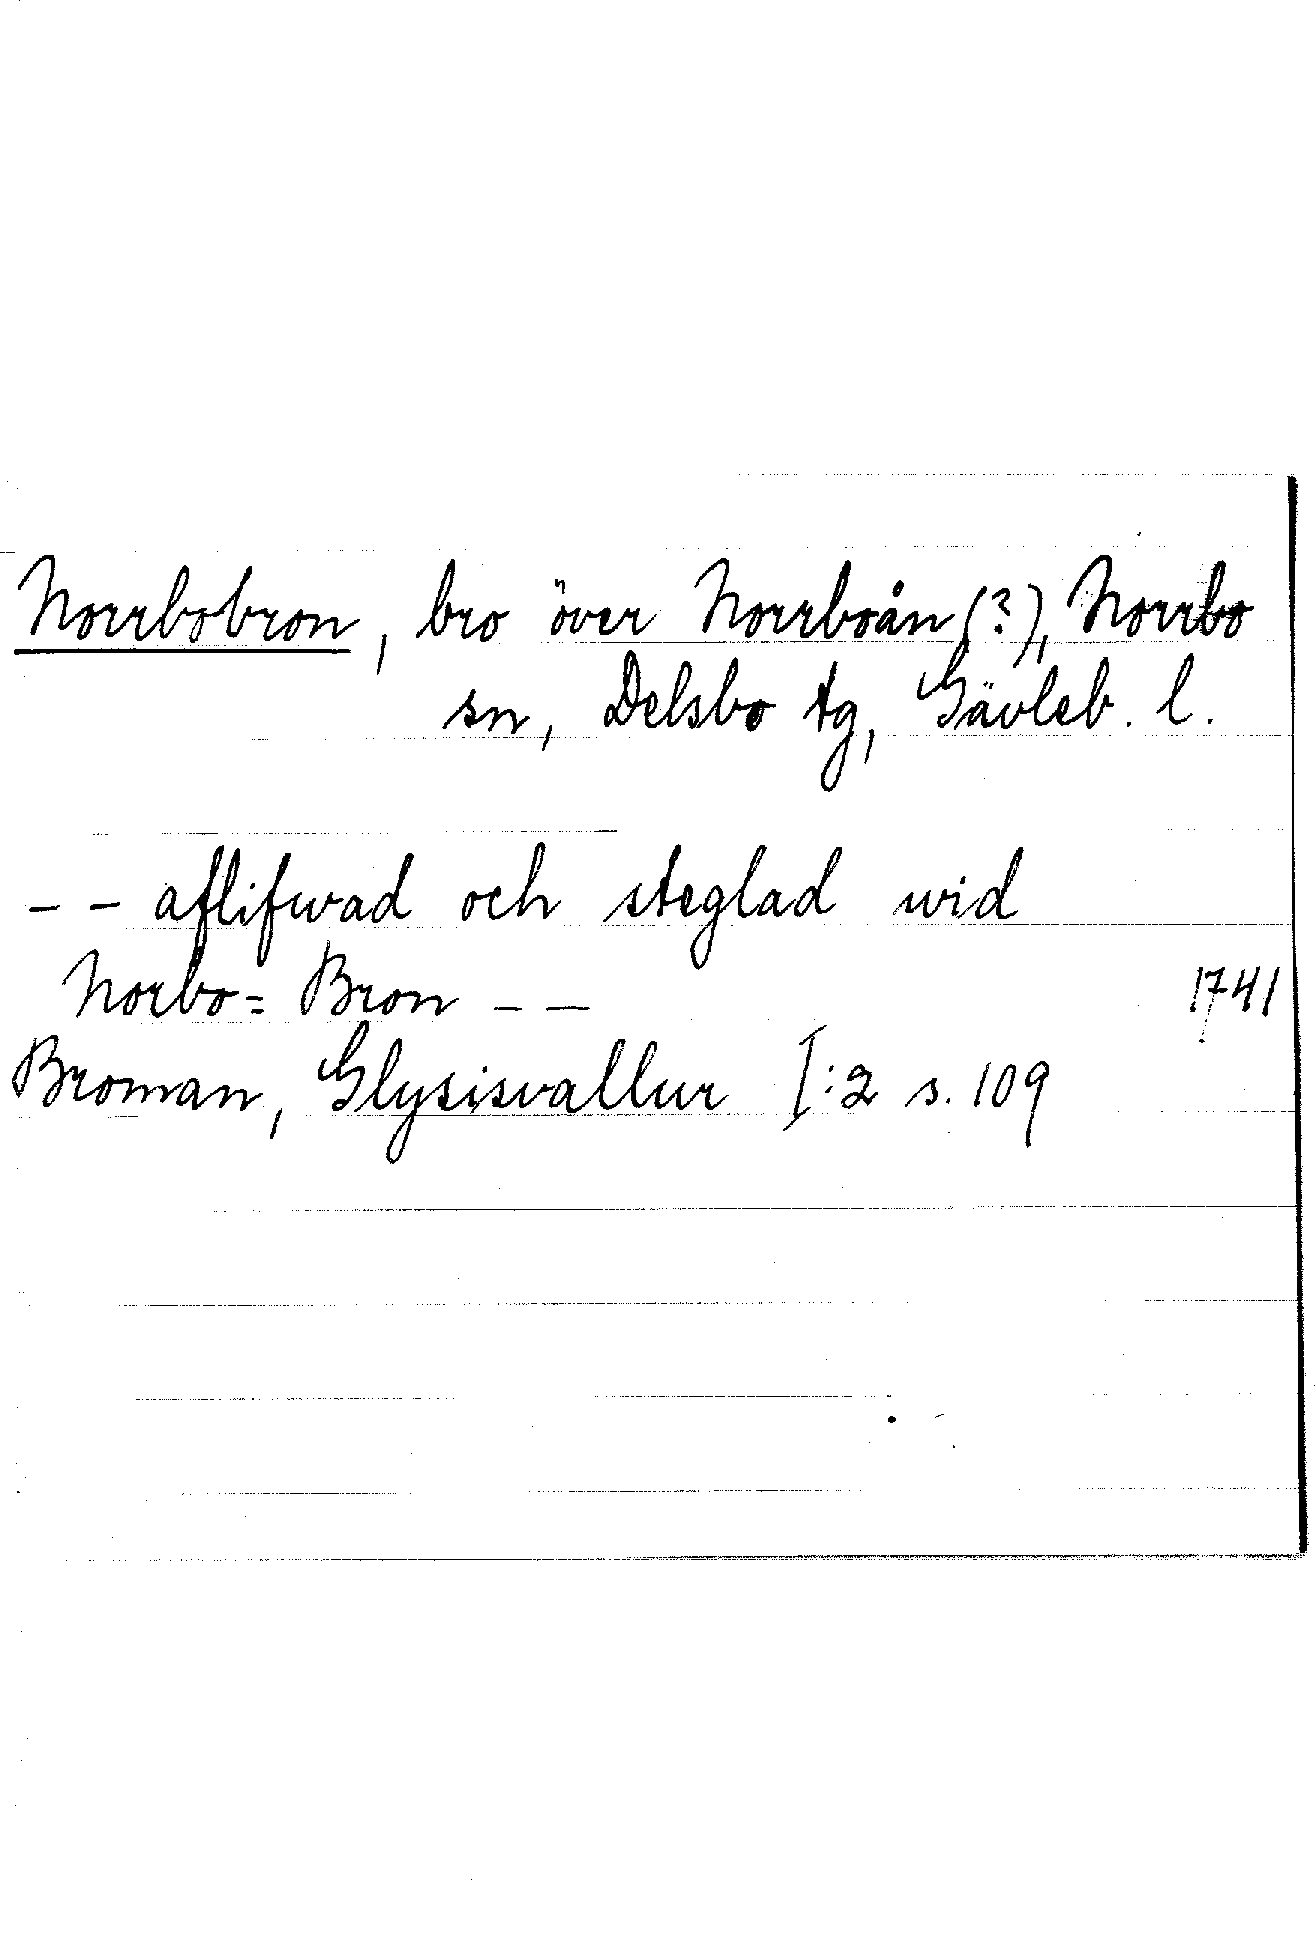 Norrbobron, bro över Norrboån (?), Norrbo
sn, Delsbo tg, Gävleb. l.
- - aflifwad och steglad wid
Norbo= Bron - - 1741
Broman, Glysisvallur I:2 s. 109